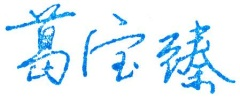 葛宝臻